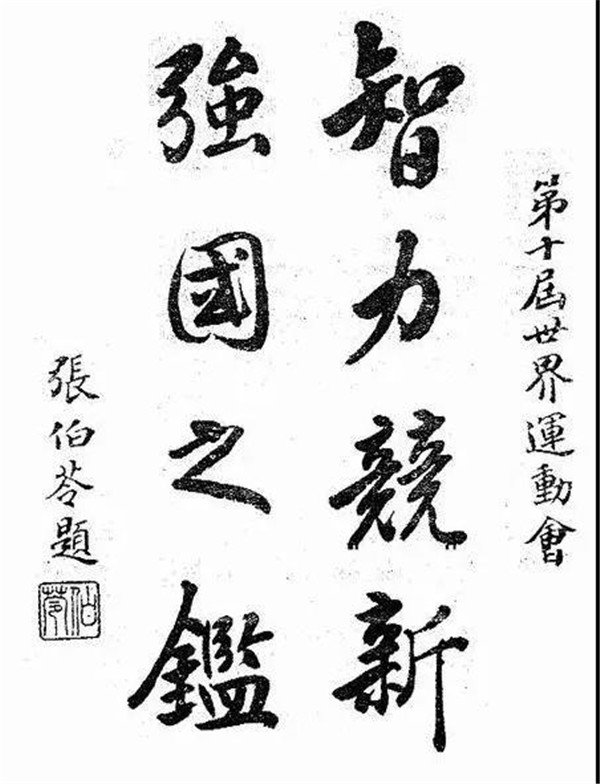 第十屆世界運動會
智力競新
強國之鑑
張伯苓題
伯苓